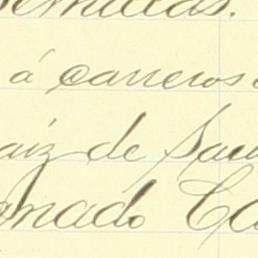 Semillas.
á carreros
aiz de San
onado Ca